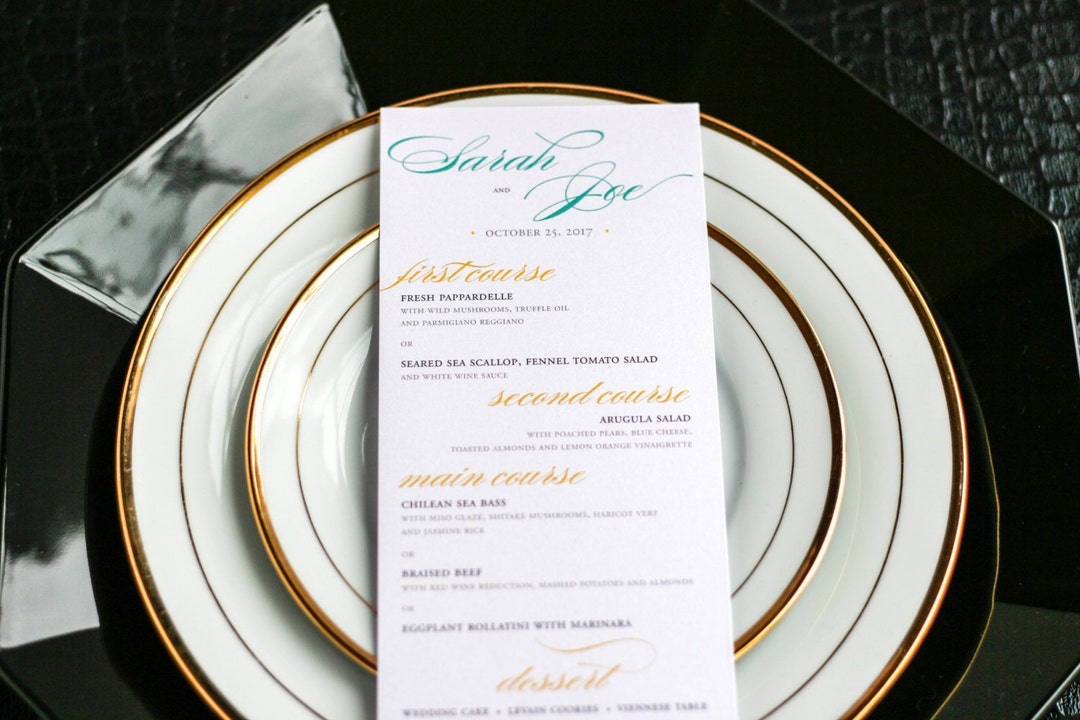 Sarah
AND
Joe
• OCTOBER 25, 2017 •
first course
FRESH PAPPARDELLE
WITH WILD MUSHROOMS, TRUFFLE OIL
AND PARMIGIANO REGGIANO
OR
SEARED SEA SCALLOP, FENNEL TOMATO SALAD
AND WHITE WINE SAUCE
second course
ARUGULA SALAD
WITH POACHED PEARS, BLUE CHEESE,
TOASTED ALMONDS AND LEMON ORANGE VINAIGRETTE
main course
CHILEAN SEA BASS
WITH MISO GLAZE, SHITAKE MUSHROOMS, HARICOT VERT
AND JASMINE RICE
OR
BRAISED BEEF
WITH RED WINE REDUCTION, MASHED POTATOES AND ALMONDS
OR
EGGPLANT ROLLATINI WITH MARINARA
dessert
WEDDING CAKE • LEVAIN COOKIES • VIENNESE TABLE